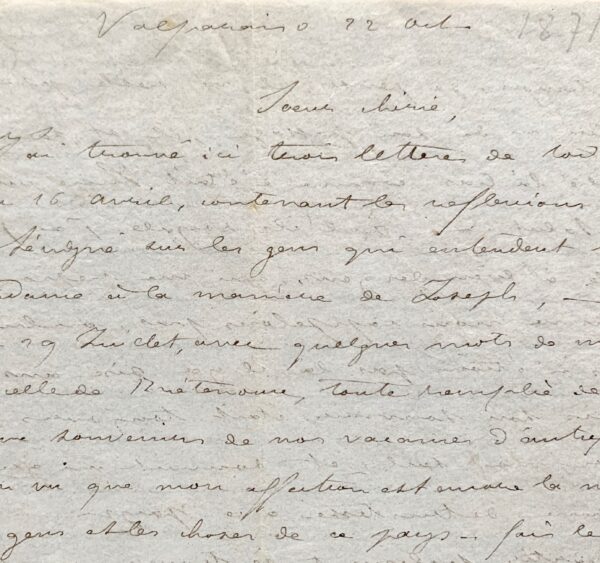 Valparaiso 22 Oct 1871
Soeur chérie,
J'ai trouvé ici trois lettres de toi
16 avril, contenant les réflexions
Sévigné sur les gens qui entendent
à la manière de Joseph, —
29 Juillet, avec quelques mots de m
celle de toute remplie de
souvenirs de nos vacances d'autref
vu que mon affection est encore la m
gens et les choses de ce pays — fais le